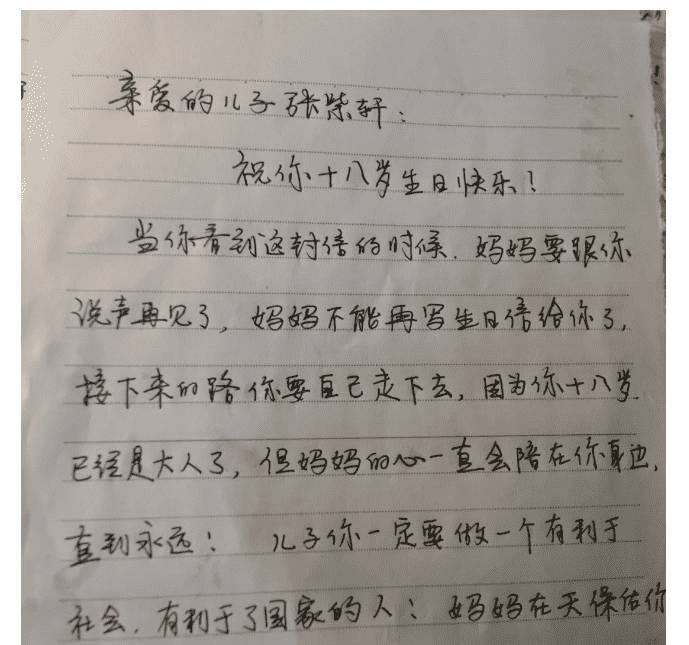 亲爱的儿子张紫轩：
祝你十八岁生日快乐！
当你看到这封信的时候．妈妈要跟你
说声再见了，妈妈不能再写生日信给你了，
接下来的路你要自己走下去，因为你十八岁
已经是大人了，但妈妈的心一直会陪在你身边，
直到永远！ 儿子你一定要做一个有利于
社会，有利于了国家的人！妈妈在天保佑你